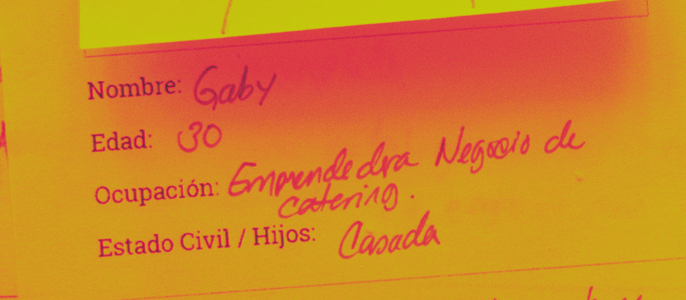 Nombre: Gaby
Edad: 30
Ocupación: Emprendedora Negocio de
catering.
Estado Civil / Hijos: Casada